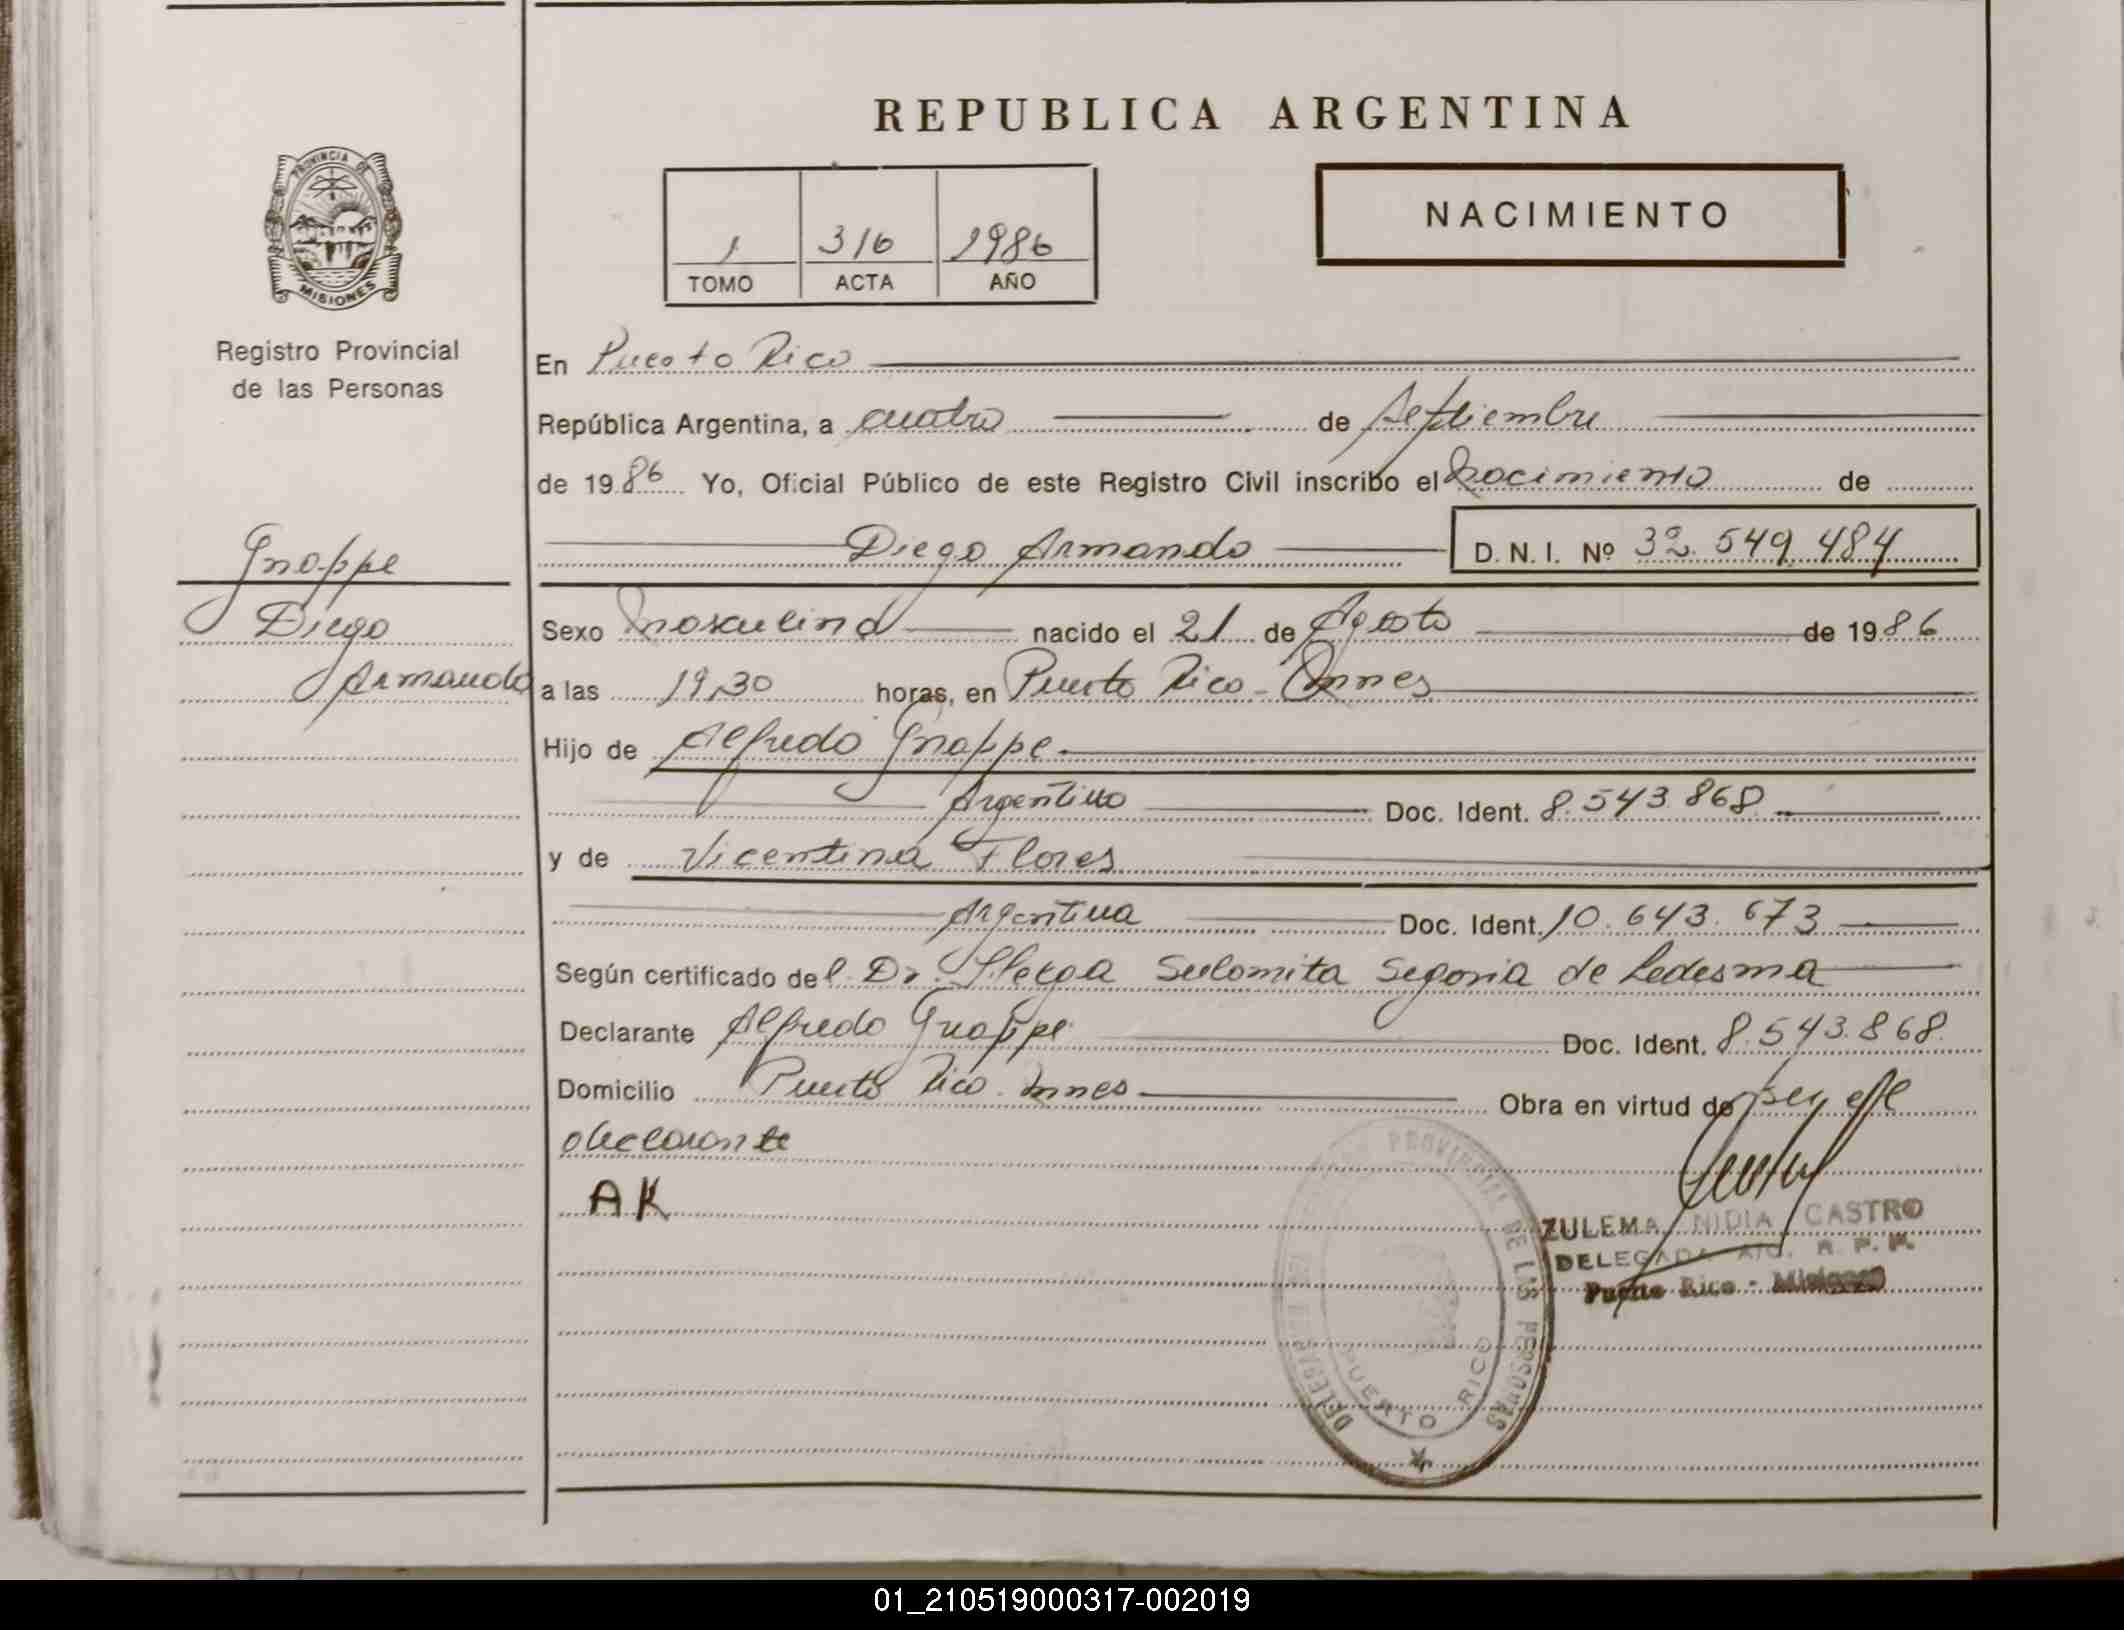 REPUBLICA ARGENTINA
PROVINCIA DE
MISIONES
Registro Provincial
de las Personas
1 316 1986
TOMO ACTA AÑO
NACIMIENTO
Gnoppe
Diego
Armando
En Puerto Rico
República Argentina, a cuatro de Septiembre
de 1986 Yo, Oficial Público de este Registro Civil inscribo el Nacimiento de
Diego Armando D. N. I. Nº 32.549.484
Sexo Masculino nacido el 21 de Agosto de 1986
a las 19,30 horas, en Puerto Rico - Mnes
Hijo de Alfredo Gnoppe
Argentino Doc. Ident. 8.543.868
y de Vicentina Flores
Argentina Doc. Ident. 10.643.673
Según certificado del Dr. Sulomita Segovia de Ledesma
Declarante Alfredo Gnoppe Doc. Ident. 8.543.868
Domicilio Puerto Rico - Mnes Obra en virtud de ser el
declarante
AK
PROVINCIAL DE LAS PERSONAS
PUERTO RICO
ZULEMA NIDIA CASTRO
DELEGADA R. P. P.
Puerto Rico - Misiones
01_210519000317-002019